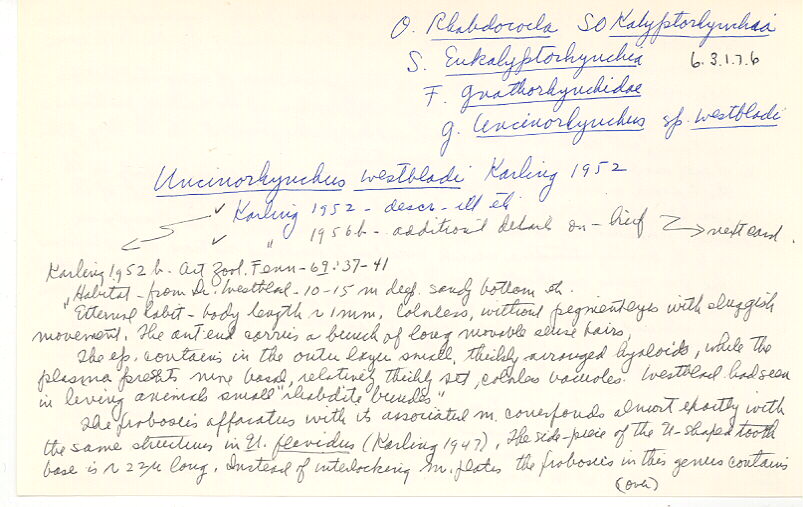 O. Rhabdocoela SO Kalyptorhynchia
S. Eukalyptorhynchia 6.3.1.7.6
F. Gnathorhynchidae
g. Uncinorhynchus sp. westbladi
Uncinorhynchus westbladi Karling 1952
✓ Karling 1952 - descr - ill etc
✓ " 1956b - additional details on - brief → next card.
Karling 1952 b - Art Zool. Fenn - 69: 37-41
"Habitat - from Dr. Westblad - 10-15 m deep. sandy bottom etc.
External habit - body length ~ 1mm. Colorless, without pigment eyes with sluggish
movement. The ant end carries a bunch of long movable sense hairs.
The ep. contains in the outer layer small, thickly arranged hyaloids, while the
plasma presents basad, relatively thickly set, colorless vacuoles. Westblad had seen
in living animals small "rhabdite bundles"
The proboscis apparatus with its associated m. corresponds almost exactly with
the same structures in U. flavidus (Karling 1947). The side-piece of the U-shaped tooth
base is ~ 22µ long. Instead of interlocking m. plates the proboscis in this genus contains
(over)